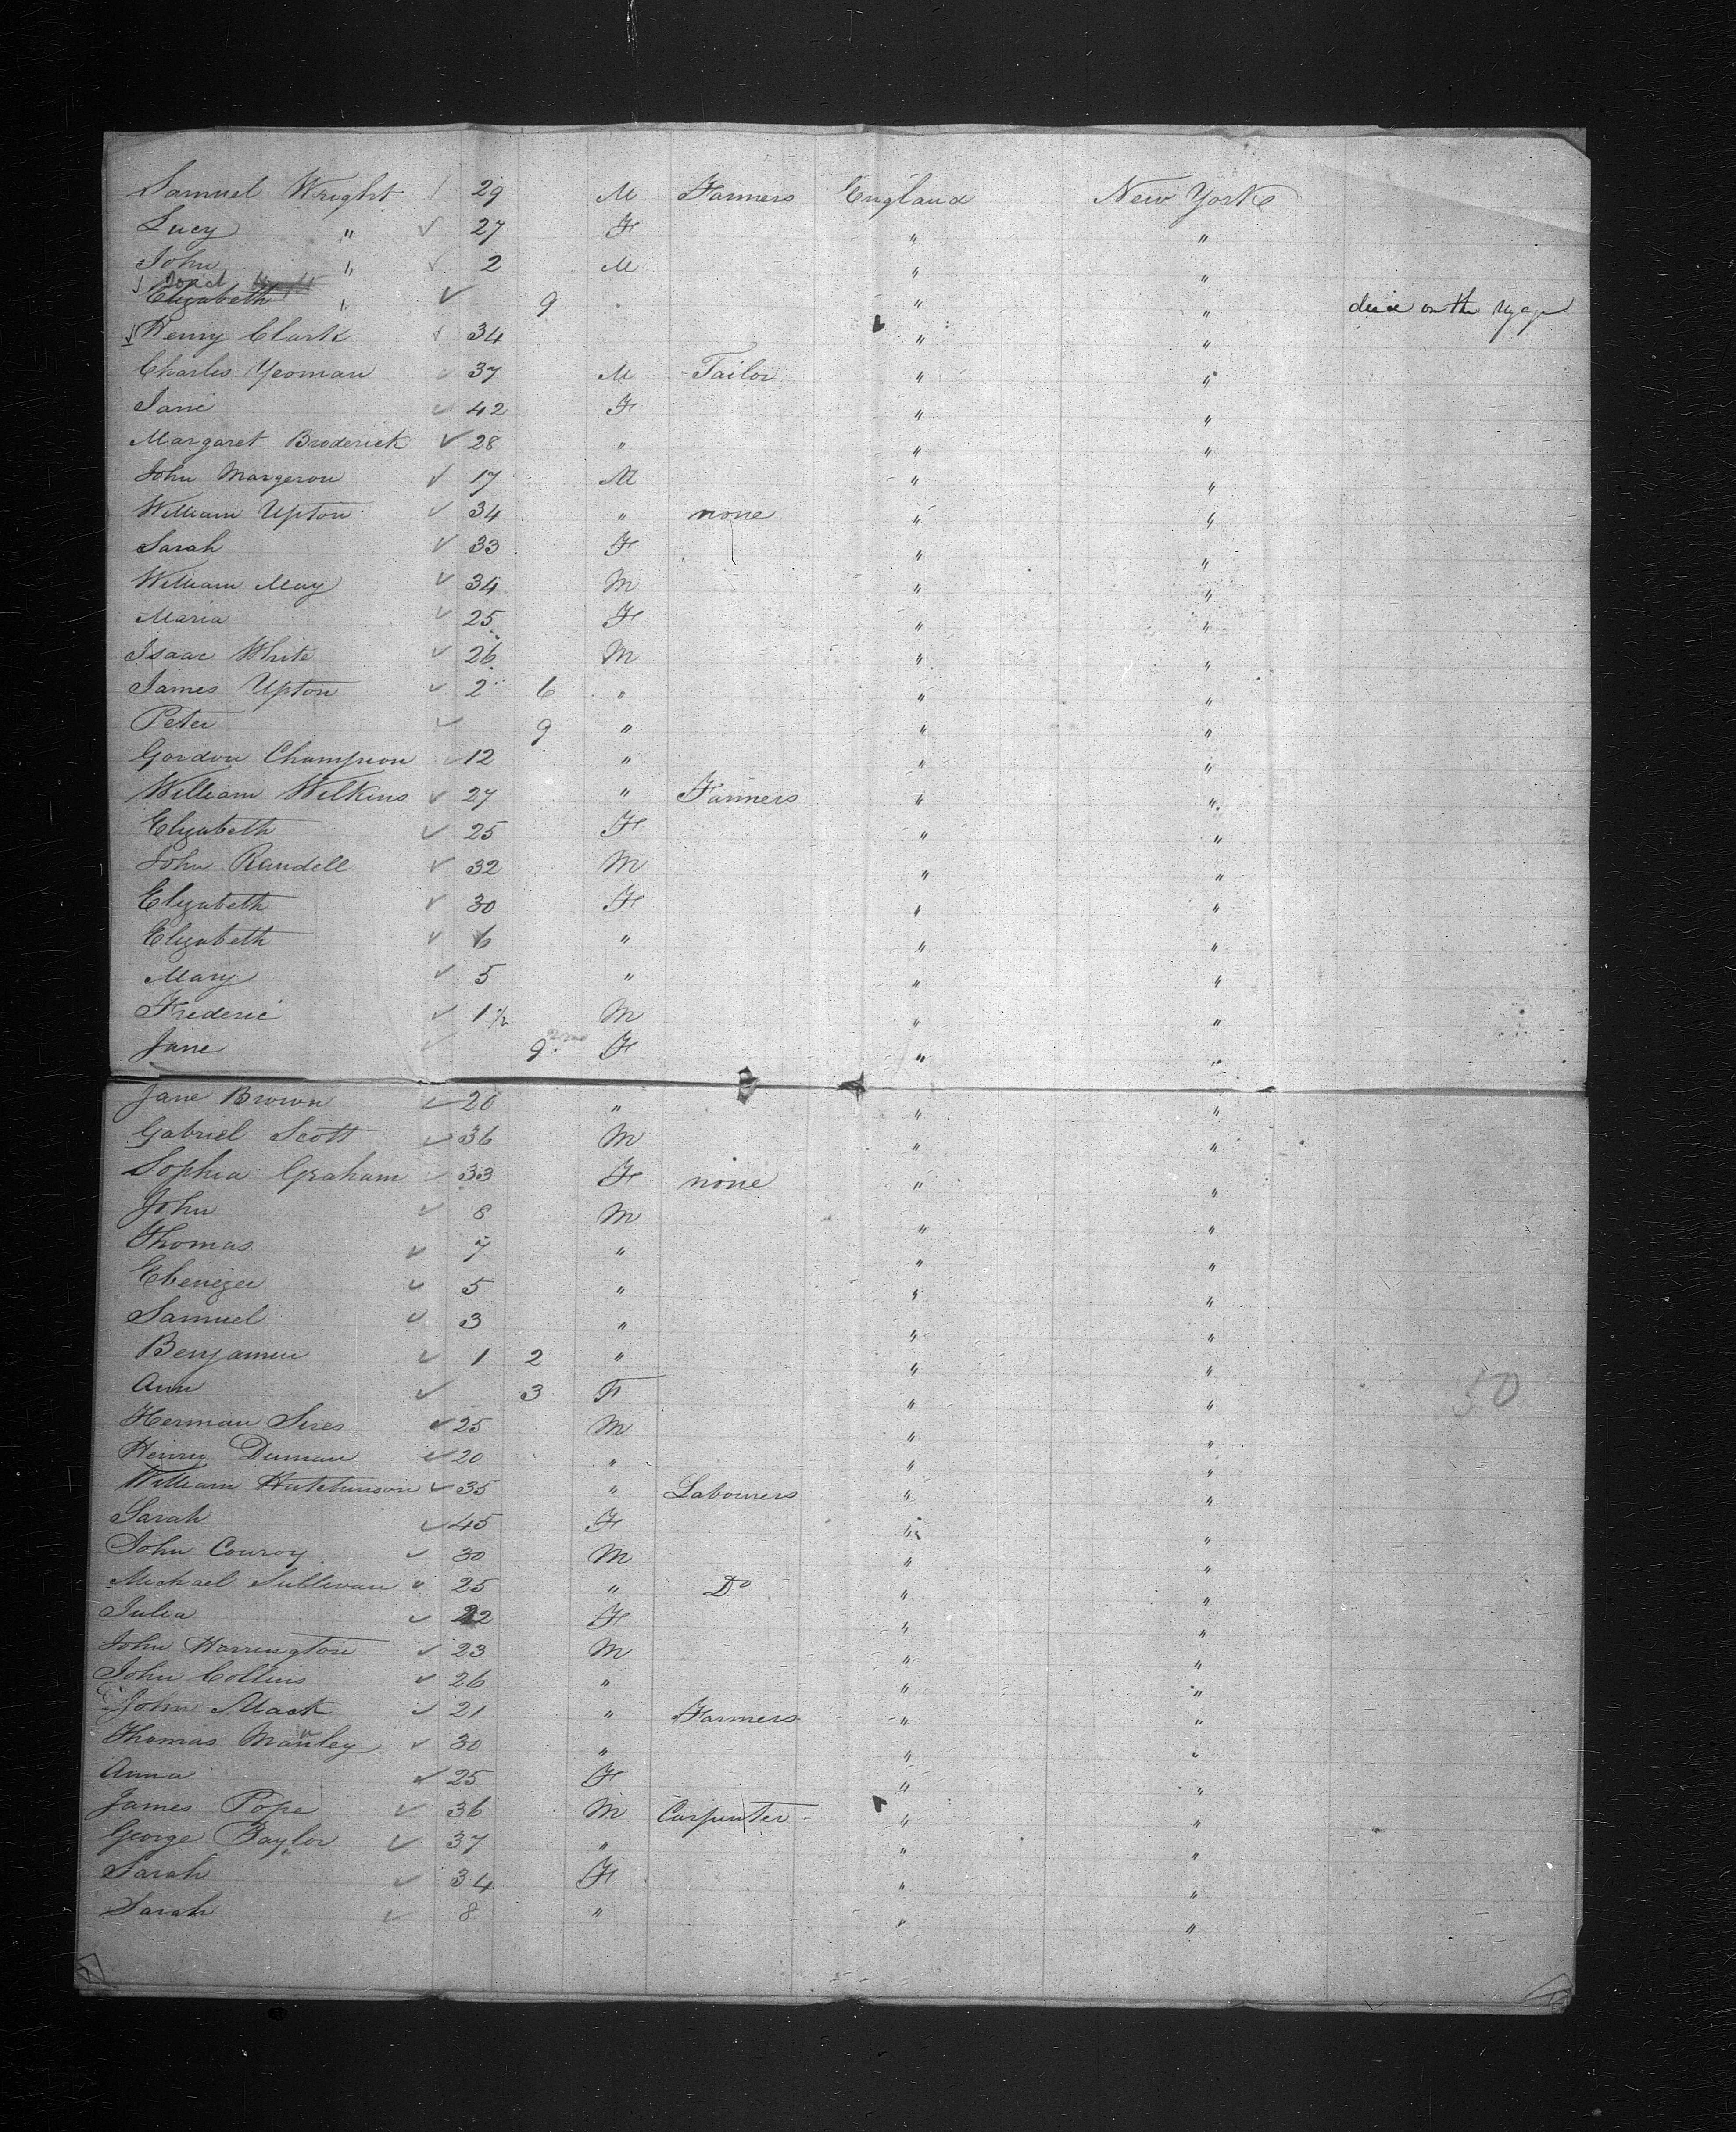 Samuel Wright 29 M Farmers England New York
Lucy " 27 F " "
John " 2 M " "
Elizabeth " 9 " " on the
Henry Clark 34 " "
Charles Yeoman 37 M Tailor " "
Jane 42 F " "
Margaret Broderick 28 " " "
John Margerom 17 M " "
William Upton 34 " none " "
Sarah 33 F " "
William May 34 M " "
Maria 25 F " "
Isaac White 26 M " "
James Upton 2 6 " " "
Peter 9 " " "
Gordon Champion 12 " " "
William Wilkins 27 " Farmers " "
Elizabeth 25 F " "
John Randell 32 M " "
Elizabeth 30 F " "
Elizabeth 6 " " "
Mary 5 " " "
Frederic 1 1/2 M " "
Jane 9 F " "
Jane Brown 20 " " "
Gabriel Scott 36 M " "
Sophia Graham 33 F none " "
John 8 M " "
Thomas 7 " " "
Ebenezer 5 " " "
Samuel 3 " " "
Benjamin 1 2 " " "
Ann 3 F " "
Herman Sires 25 M " "
Henry Duman 20 " " "
William Hutchinson 35 " Labourers " "
Sarah 45 F " "
John Conroy 30 M " "
Michael Sullivan 25 " Do " "
50
Julia 22 F " "
John Harrington 23 M " "
John Collins 26 " " "
John Mack 21 " Farmers " "
Thomas Manley 30 " " "
Anna 25 F " "
James Pope 36 M Carpenter " "
George Baylor 37 " " "
Sarah 34 F " "
Sarah 8 " " "